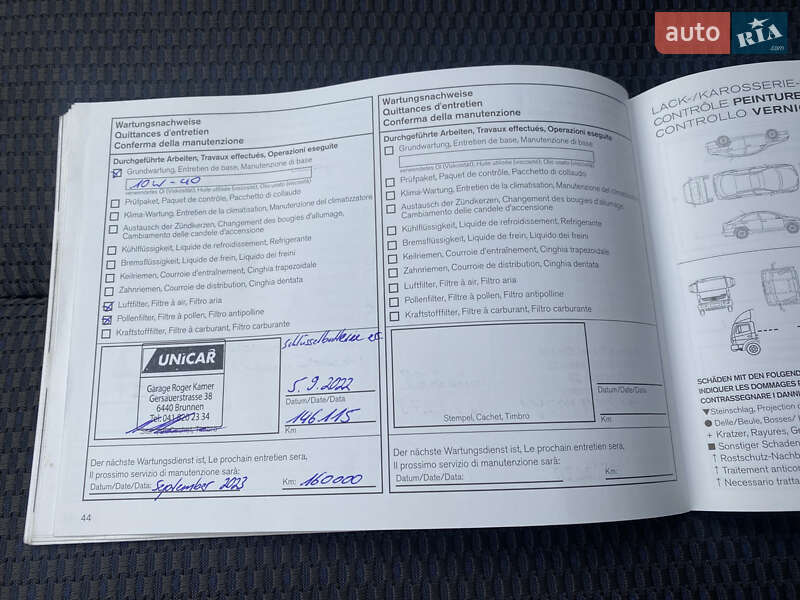 auto RIA .com
Wartungsnachweise
Quittances d'entretien
Conferma della manutenzione
Durchgeführte Arbeiten, Travaux effectués, Operazioni eseguite
Grundwartung, Entretien de base, Manutenzione di base
10W-40
verwendetes Öl (Viskosität), Huile utilisée (viscosité), Olio usato (viscosità)
Prüfpaket, Paquet de contrôle, Pacchetto di collaudo
Klima-Wartung, Entretien de la climatisation, Manutenzione del climatizzatore
Austausch der Zündkerzen, Changement des bougies d'allumage,
Cambiamento delle candele d'accensione
Kühlflüssigkeit, Liquide de refroidissement, Refrigerante
Bremsflüssigkeit, Liquide de frein, Liquido dei freini
Keilriemen, Courroie d'entraînement, Cinghia trapezoidale
Zahnriemen, Courroie de distribution, Cinghia dentata
Luftfilter, Filtre à air, Filtro aria
Pollenfilter, Filtre à pollen, Filtro antipolline
Kraftstofffilter, Filtre à carburant, Filtro carburante
UNICAR
Garage Roger Kamer
Gersauerstrasse 38
6440 Brunnen
Tel. 041 820 23 34
5.9.2022
Datum/Date/Data
146115
Km
Der nächste Wartungsdienst ist, Le prochain entretien sera,
Il prossimo servizio di manutenzione sarà:
Datum/Date/Data: September 2023 Km: 160000
44
Wartungsnachweise
Quittances d'entretien
Conferma della manutenzione
Durchgeführte Arbeiten, Travaux effectués, Operazioni eseguite
Grundwartung, Entretien de base, Manutenzione di base
verwendetes Öl (Viskosität), Huile utilisée (viscosité), Olio usato (viscosità)
Prüfpaket, Paquet de contrôle, Pacchetto di collaudo
Klima-Wartung, Entretien de la climatisation, Manutenzione del climatizzatore
Austausch der Zündkerzen, Changement des bougies d'allumage,
Cambiamento delle candele d'accensione
Kühlflüssigkeit, Liquide de refroidissement, Refrigerante
Bremsflüssigkeit, Liquide de frein, Liquido dei freini
Keilriemen, Courroie d'entraînement, Cinghia trapezoidale
Zahnriemen, Courroie de distribution, Cinghia dentata
Luftfilter, Filtre à air, Filtro aria
Pollenfilter, Filtre à pollen, Filtro antipolline
Kraftstofffilter, Filtre à carburant, Filtro carburante
Stempel, Cachet, Timbro
Datum/Date/Data
Km
Der nächste Wartungsdienst ist, Le prochain entretien sera,
Il prossimo servizio di manutenzione sarà:
Datum/Date/Data: Km:
LACK-/KAROSSERIE-
CONTRÔLE PEINTURE
CONTROLLO VERNI
SCHÄDEN MIT DEN FOLGEND
INDIQUER LES DOMMAGES
CONTRASSEGNARE I DANNI
Steinschlag, Projection
Delle/Beule, Bosses/
+ Kratzer, Rayures, Gr
Sonstiger Schaden
↑ Rostschutz-Nachb
↑ Traitement anticor
↑ Necessario tratta